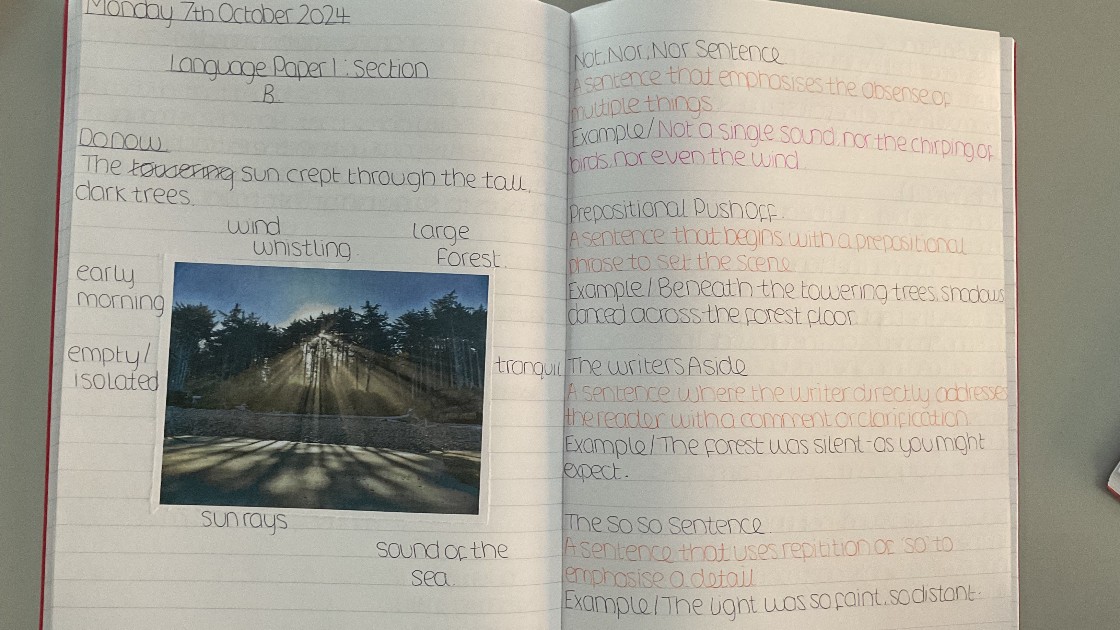 Monday 7th October 2024
Language Paper 1: Section
B.
Do now
The towering sun crept through the tall,
dark trees.
wind
whistling
large
forest.
early
morning
empty/
isolated
tranquil
sun rays
sound of the
sea.
Not, Nor, Nor Sentence
A sentence that emphasises the absense of
multiple things
Example/ Not a single sound, nor the chirping of
birds, nor even the wind
Prepositional Push off.
A sentence that begins with a prepositional
phrase to set the scene
Example/ Beneath the towering trees, shadows
danced across the forest floor
The writers Aside
A sentence where the writer directly addresses
the reader with a comment or clarification.
Example/ The forest was silent-as you might
expect.
The so so sentence
A sentence that uses repitition of 'so' to
emphasise a detail
Example/ The light was so faint, so distant.